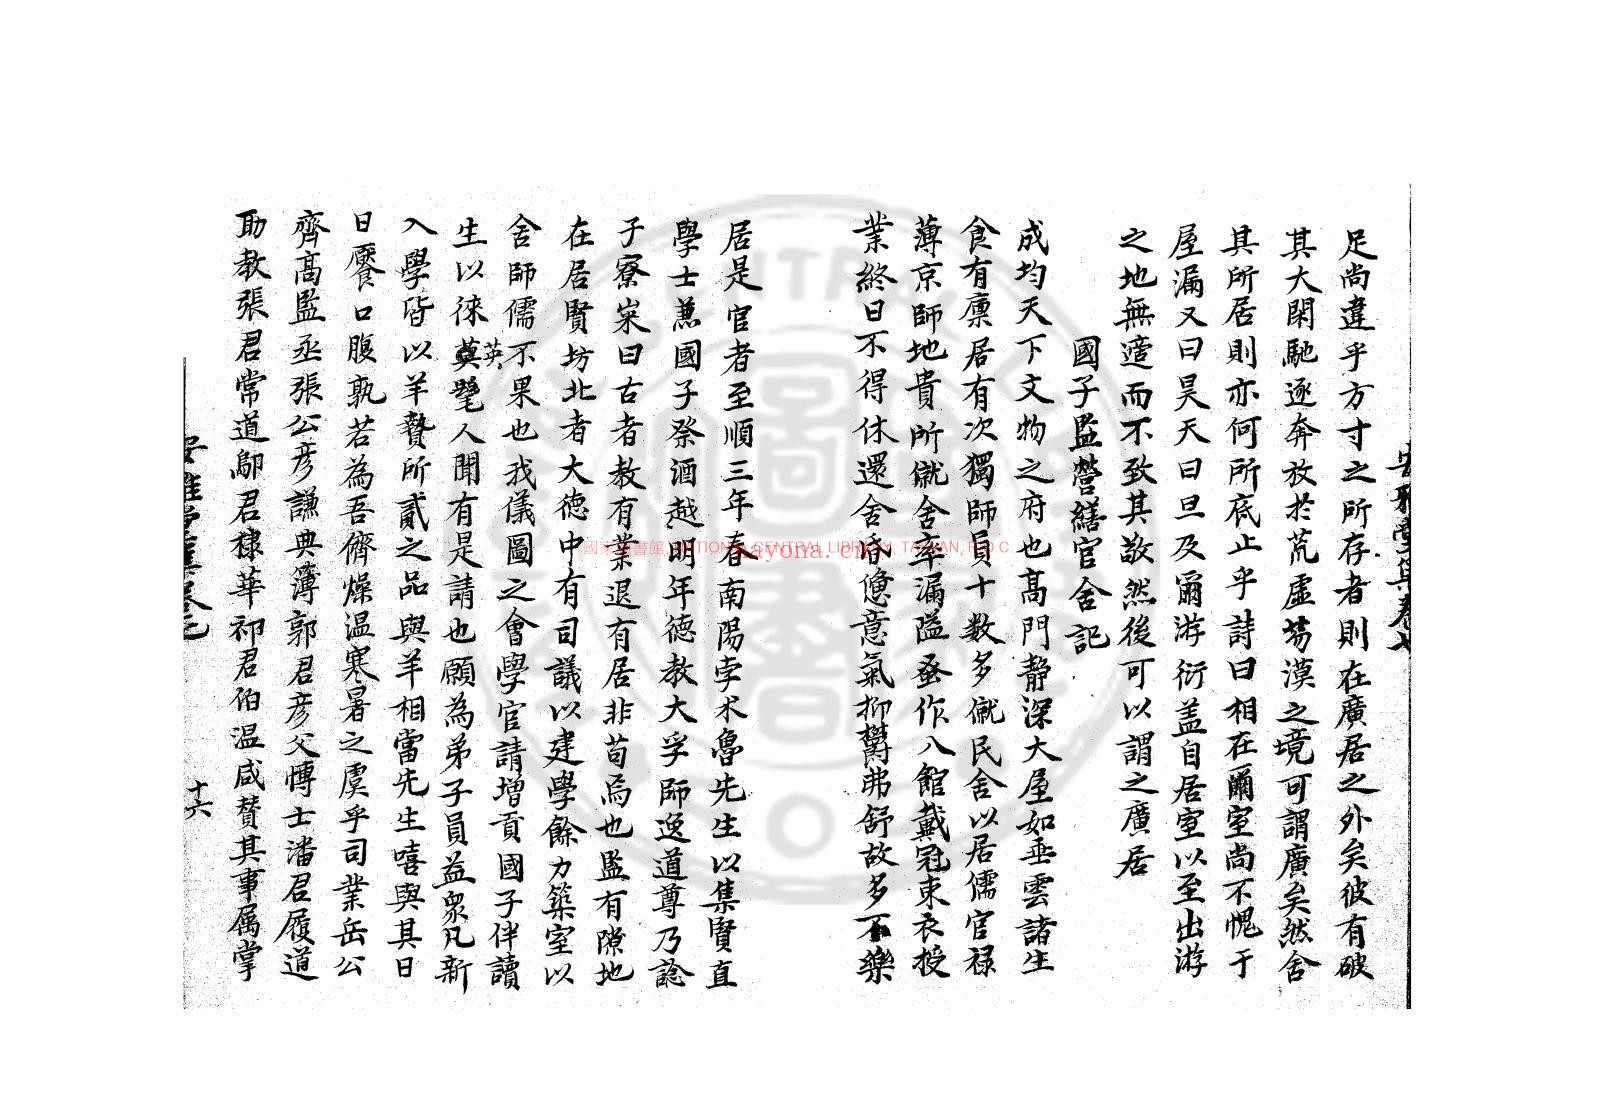 安雅堂集卷七
足尚違乎方寸之所存者則在廣居之外矣彼有破
其大閑馳逐奔放於荒虛蒻漠之境可謂廣矣然舍
其所居則亦何所底止乎詩曰相在爾室尚不愧于
屋漏又曰昊天曰旦及爾游衍盖自居室以至出游
之地無適而不致其敬然後可以謂之廣居
國子監營繕官舍記
成均天下文物之府也髙門靜深大屋如垂雲諸生
食有廪居有次獨師員十數多僦民舍以居儒官禄
薄京師地貴所僦舍率漏隘蚤作入館戴冠束衣授
業終日不得休還舍昏憊意氣抑欝弗舒故多不樂
居是官者至順三年春南陽孛术魯先生以集賢直
學士兼國子祭酒越明年德教大孚師逸道尊乃諗
子寮寀曰古者教有業退有居非苟焉也監有隙地
在居賢坊北者大德中有司議以建學餘力築室以
舍師儒不果也我儀圖之會學官請增貢國子伴讀
生以徠英髦人聞有是請也願為弟子員益衆凡新
英
入學皆以羊贄所貳之品與羊相當先生嘻與其日
日饜口腹孰若為吾儕燥温寒暑之虞乎司業岳公
齊髙監丞張公彦謙典簿郭君彦父博士潘君履道
助教張君常道鄔君棣華祁君伯温咸賛其事属掌
安雅堂集卷七
十六
國家圖書館 NATIONAL CENTRAL LIBRARY, TAIWAN, R.O.C
kayona.cn